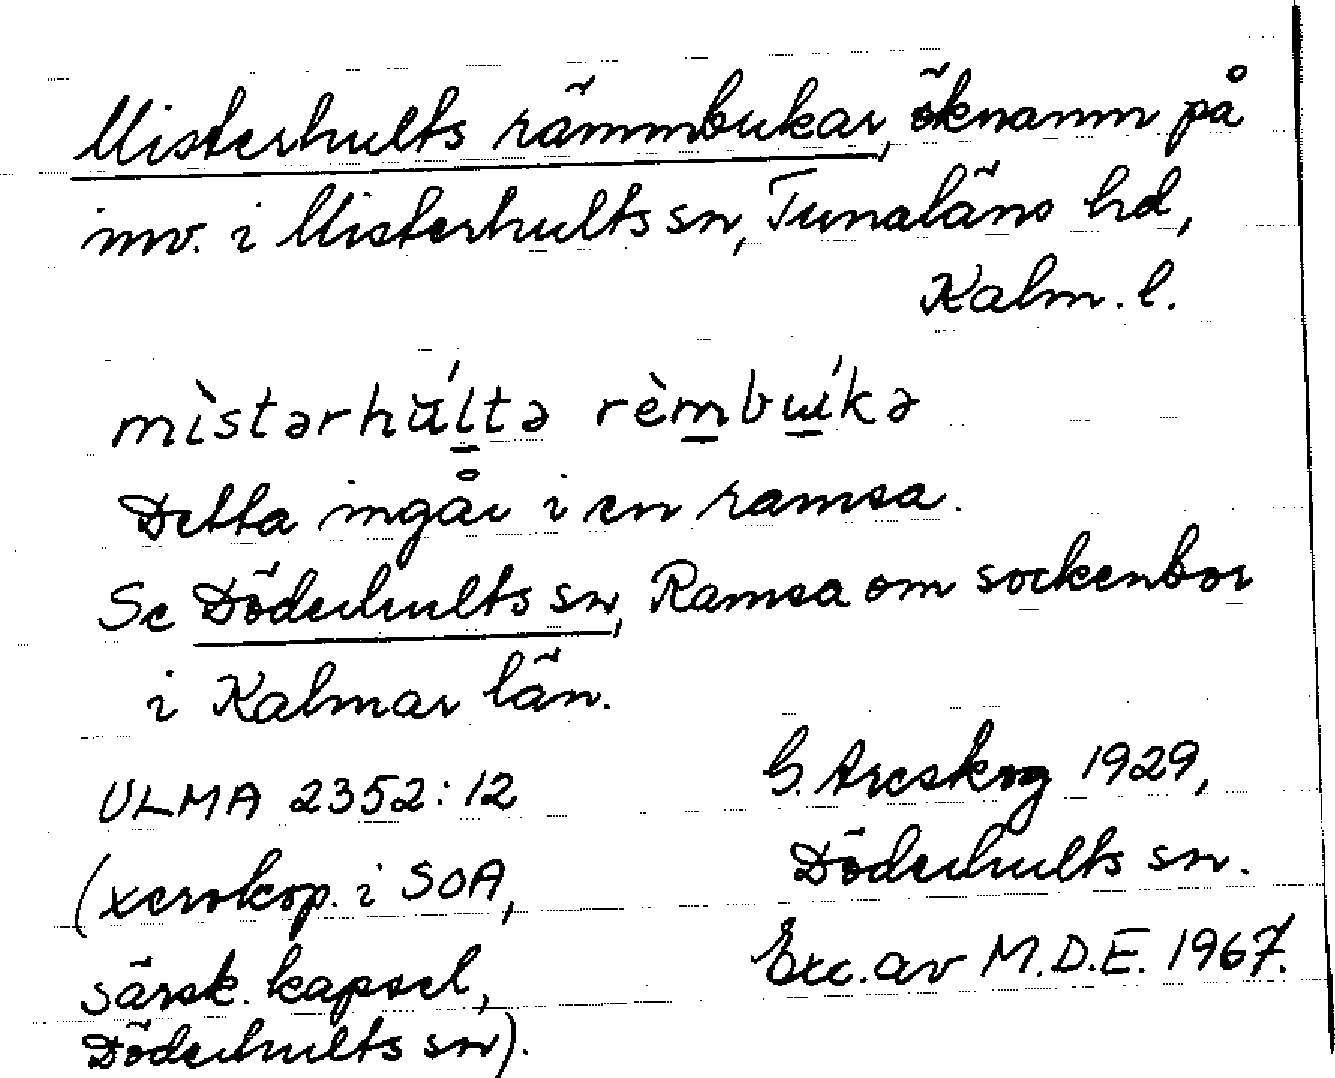 Misterhults rämmbukar, öknamn på
inv. i Misterhults sn, Tunaläns hd,
Kalm. l.
mìstərhúltə rèmbu̇́kə
Detta ingår i en ramsa.
Se Döderhults sn, Ramsa om sockenbor
i Kalmar län.
ULMA 2352:12
(xerokop. i SOA,
särsk. kapsel,
Döderhults sn).
G. Areskog 1929,
Döderhults sn.
Exc. av M.D.E. 1967.